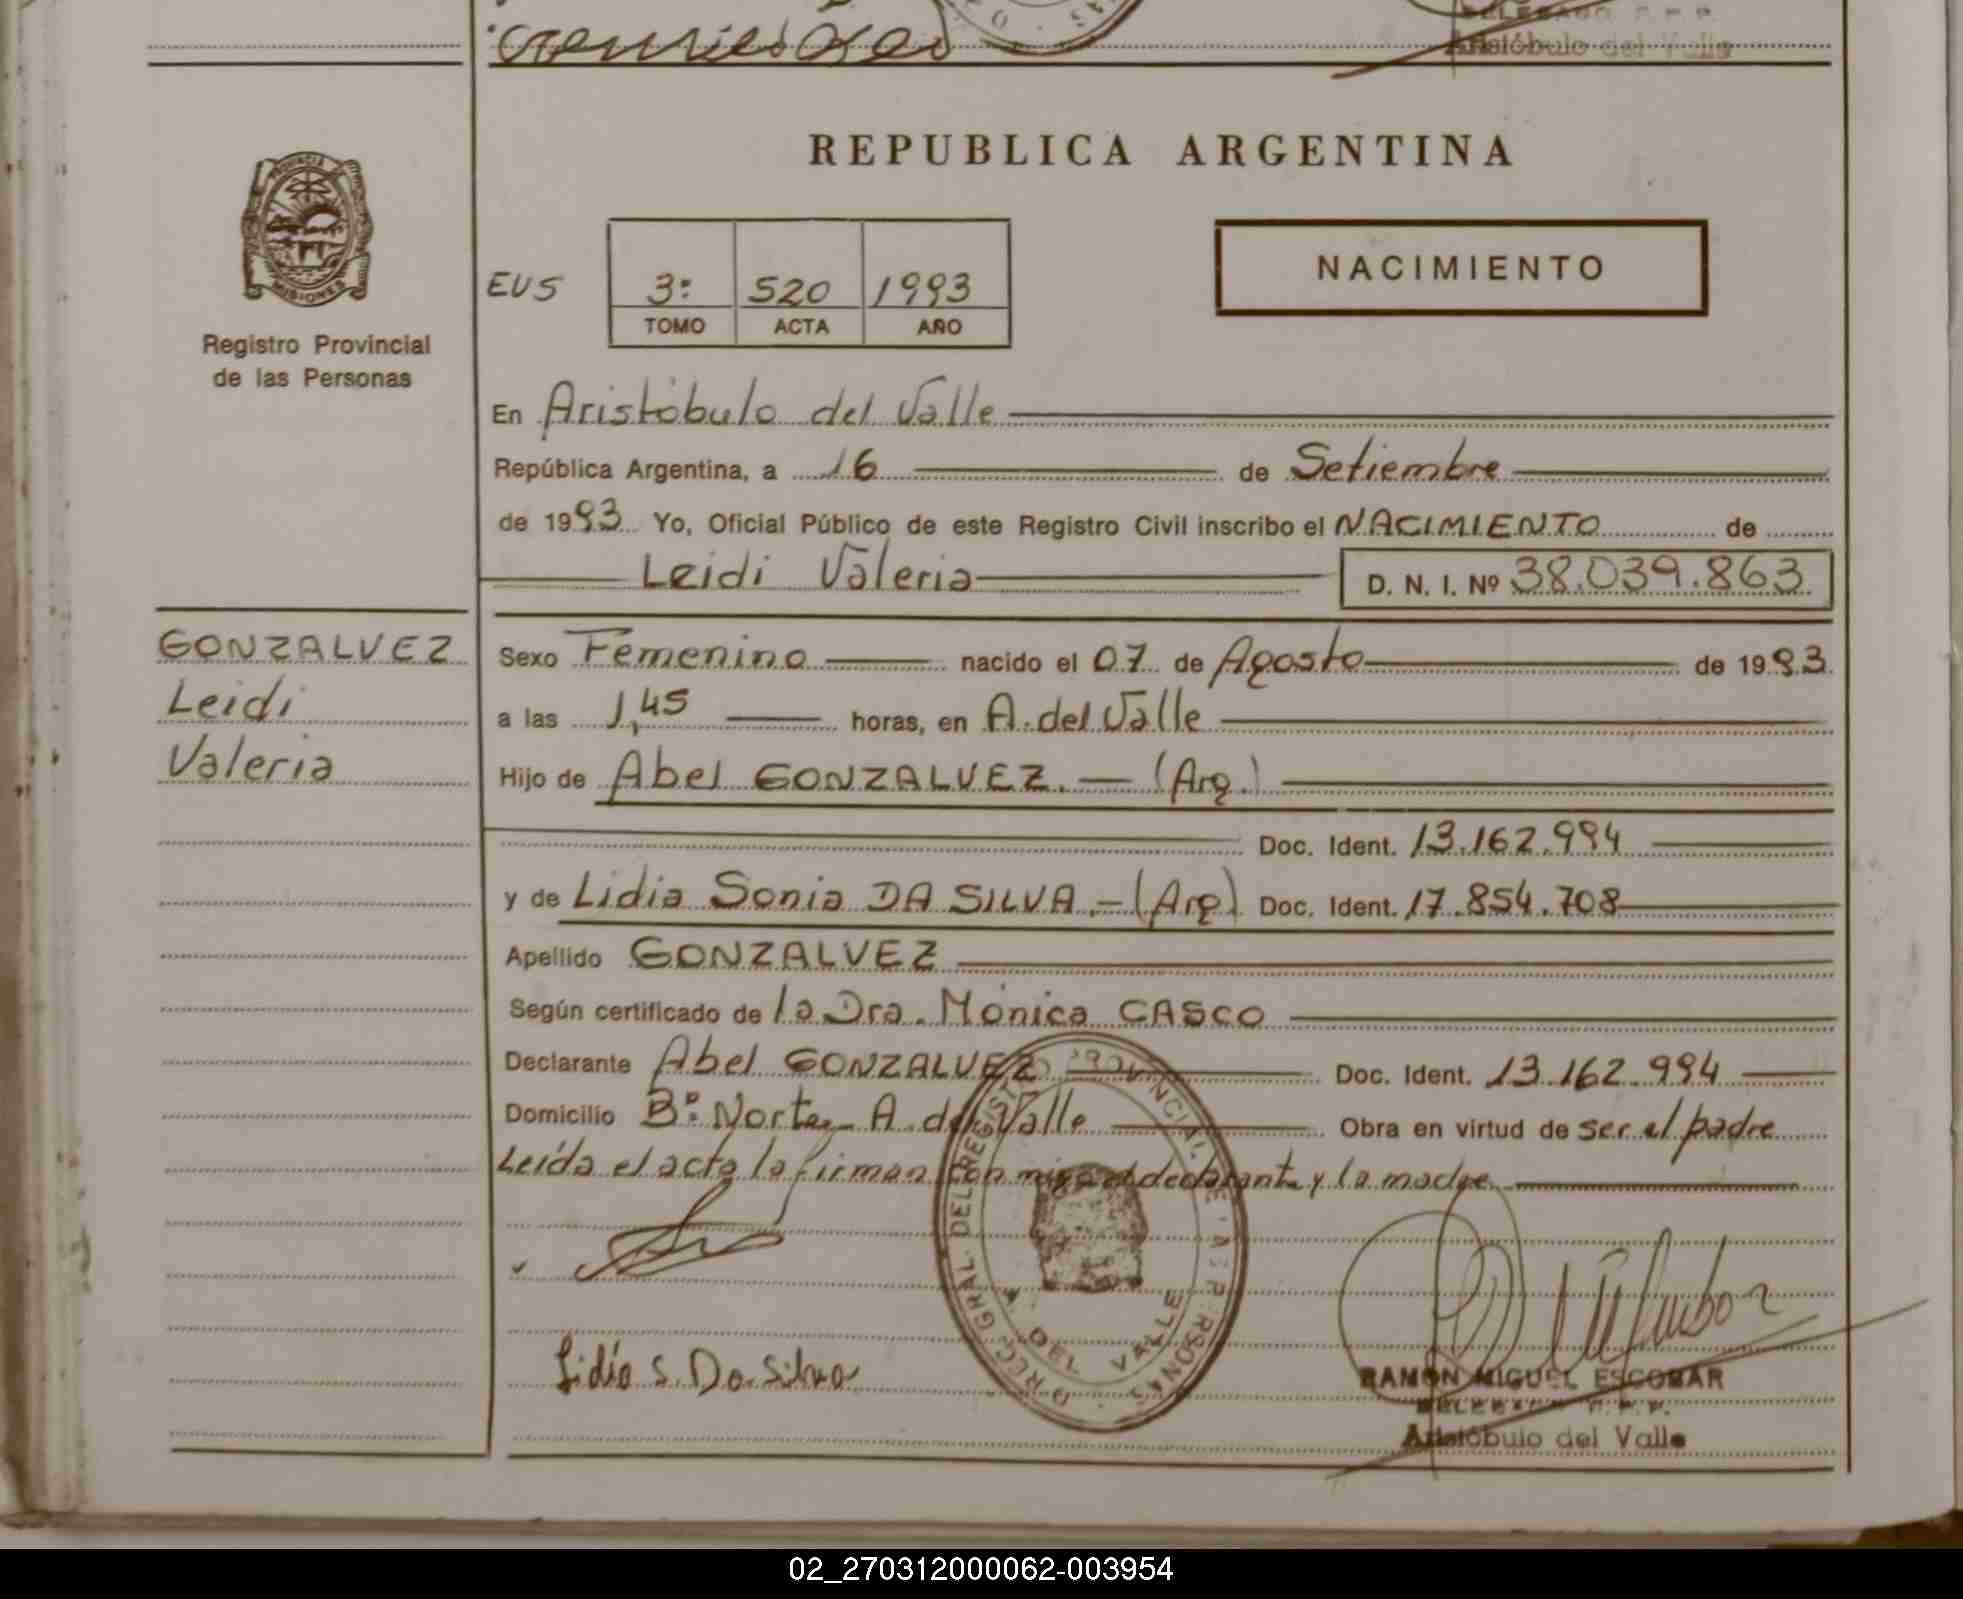 Aristóbulo del Valle
REPUBLICA ARGENTINA
PROVINCIA DE MISIONES
Registro Provincial
de las Personas
EUS 3º 520 1993
TOMO ACTA AÑO
NACIMIENTO
En Aristóbulo del Valle
República Argentina, a 16 de Setiembre
de 1993 Yo, Oficial Público de este Registro Civil inscribo el NACIMIENTO de
Leidi Valeria D. N. I. Nº 38.039.863
GONZALVEZ
Leidi
Valeria
Sexo Femenino nacido el 07 de Agosto de 1993
a las 1,45 horas, en A. del Valle
Hijo de Abel GONZALVEZ.— (Arg.)
Doc. Ident. 13.162.994
y de Lidia Sonia DA SILVA.—(Arg) Doc. Ident. 17.854.708
Apellido GONZALVEZ
Según certificado de la Dra. Mónica CASCO
Declarante Abel GONZALVEZ Doc. Ident. 13.162.994
Domicilio Bº Norte— A. del Valle Obra en virtud de ser el padre
Leída el acta la firman con migo el declarante y la madre
DIREC. GRAL. DEL REGISTRO PROVINCIAL DE LAS PERSONAS
A. DEL VALLE
Lidia S. Da Silva
RAMON MIGUEL ESCOBAR
DELEGADO R.P.P.
Aristóbulo del Valle
02_270312000062-003954